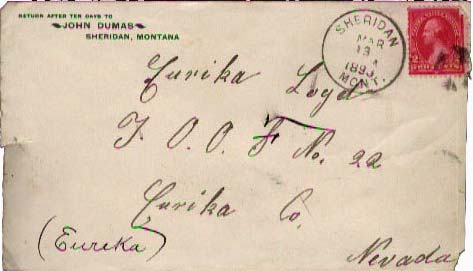 RETURN AFTER TEN DAYS TO
JOHN DUMAS
SHERIDAN, MONTANA
SHERIDAN
MAR
13
1893
MONT.
2
Eurika Loge
I. O. O. F No. 22
Eurika Co.
(Eureka)
Nevada